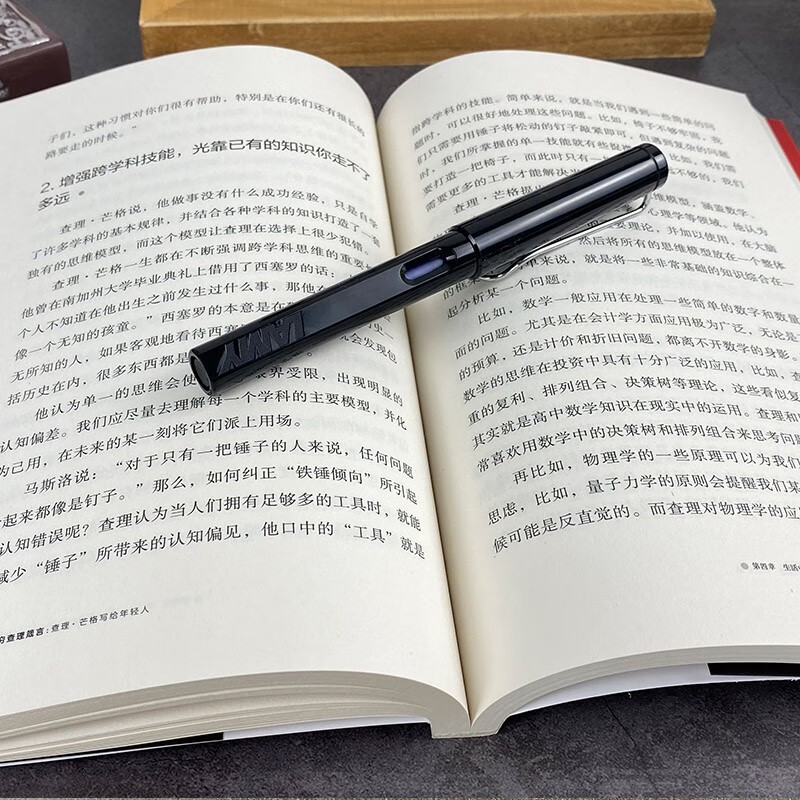 子们，这种习惯对你们很有帮助，特别是在你们还有很长的
路要走的时候。”
2. 增强跨学科技能，光靠已有的知识你走不了
多远
查理·芒格说，他做事没有什么成功经验，只是自学
了许多学科的基本规律，并结合各种学科的知识打造了一套
独有的思维模型，而这个模型让查理在选择上很少犯错。
查理·芒格一生都在不断强调跨学科思维的重要
他曾在南加州大学毕业典礼上借用了西塞罗的话：
个人不知道在他出生之前发生过什么事，那他
像一个无知的孩童。”西塞罗的本意是在
无所知的人，如果客观地看待西塞
括历史在内，很多东西都是
他认为单一的思维会使 界受限，出现明显的
认知偏差。我们应尽量去理解每一个学科的主要模型，并化
为己用，在未来的某一刻将它们派上用场。
马斯洛说：“对于只有一把锤子的人来说，任何问题
起来都像是钉子。”那么，如何纠正“铁锤倾向”所引起
认知错误呢？查理认为当人们拥有足够多的工具时，就能
减少“锤子”所带来的认知偏见，他口中的“工具”就是
查理箴言：查理·芒格写给年轻人
LAMY
指跨学科的技能。简单来说，就是当我们遇到一些简单的问
题时，可以很好地处理这些问题。比如，椅子不够牢固，我
们只需要用锤子将松动的钉子敲紧即可，但遇到复杂的问题
时，我们所掌握的单一技能就有些捉
要打造一把椅子，而此时只有一 不够的，我们
需要更多的工具才能解决
查理·芒格提出 思维模型，涵盖数学、
心理学等领域。他认为
要理论，并加以使用，在大脑
然后将所有的思维模型放在一个整体
的框 单来说，就是将一些非常基础的知识综合在一
起分析某一个问题。
比如，数学一般应用在处理一些简单的数字和数量
面的问题。尤其是在会计学方面应用极为广泛，无论是
的预算，还是计价和折旧问题，都离不开数学的身影。
数学的思维在投资中具有十分广泛的应用，比如，查
重的复利、排列组合、决策树等理论，这些看似复
其实就是高中数学知识在现实中的运用。查理和
常喜欢用数学中的决策树和排列组合来思考问题
再比如，物理学的一些原理可以为我们
思虑，比如，量子力学的原则会提醒我们某
候可能是反直觉的。而查理对物理学的应
第四章 生活